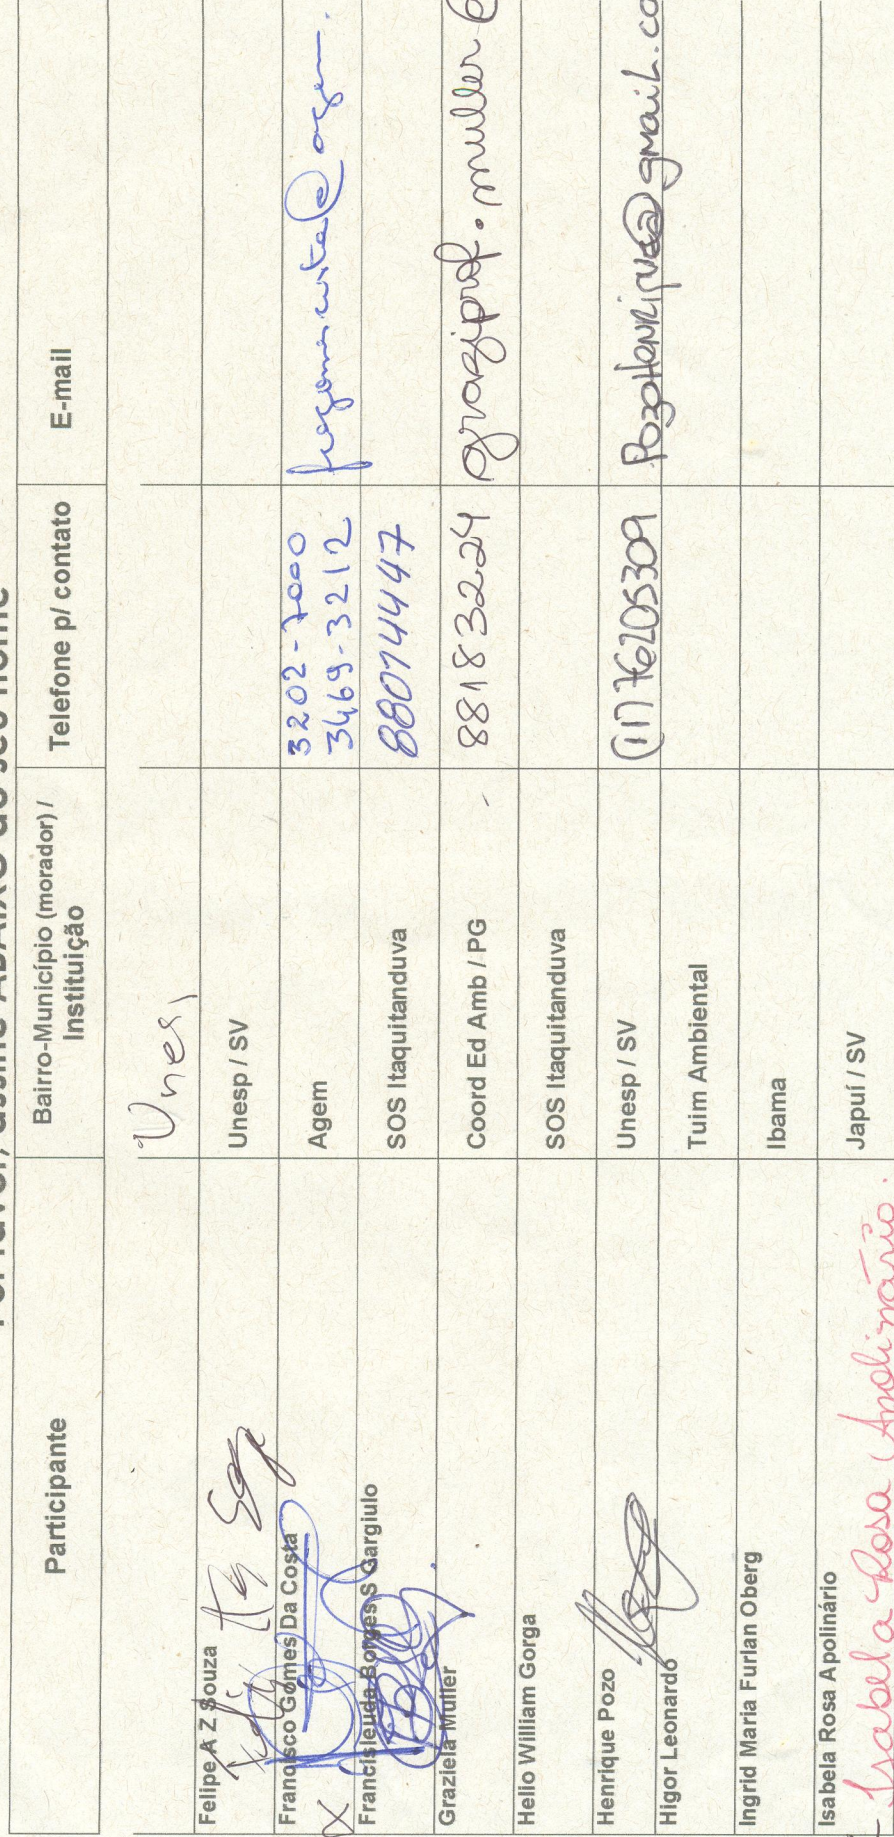 Participante
Bairro-Município (morador) /
Instituição
Telefone p/ contato
E-mail
Felipe A Z Souza
Unesp / SV
Francisco Gomes Da Costa
Agem
3202-7000
3469-3212
Francisleuda Borges S Gargiulo
SOS Itaquitanduva
88074447
Graziela Muller
Coord Ed Amb / PG
88183224
graziprof.muller@
Helio William Gorga
SOS Itaquitanduva
Henrique Pozo
Unesp / SV
(11) 76205309
Pozohenrique@gmail.co
Higor Leonardo
Tuim Ambiental
Ingrid Maria Furlan Oberg
Ibama
Isabela Rosa Apolinário
Japuí / SV
Isabela Rosa Apolinário.